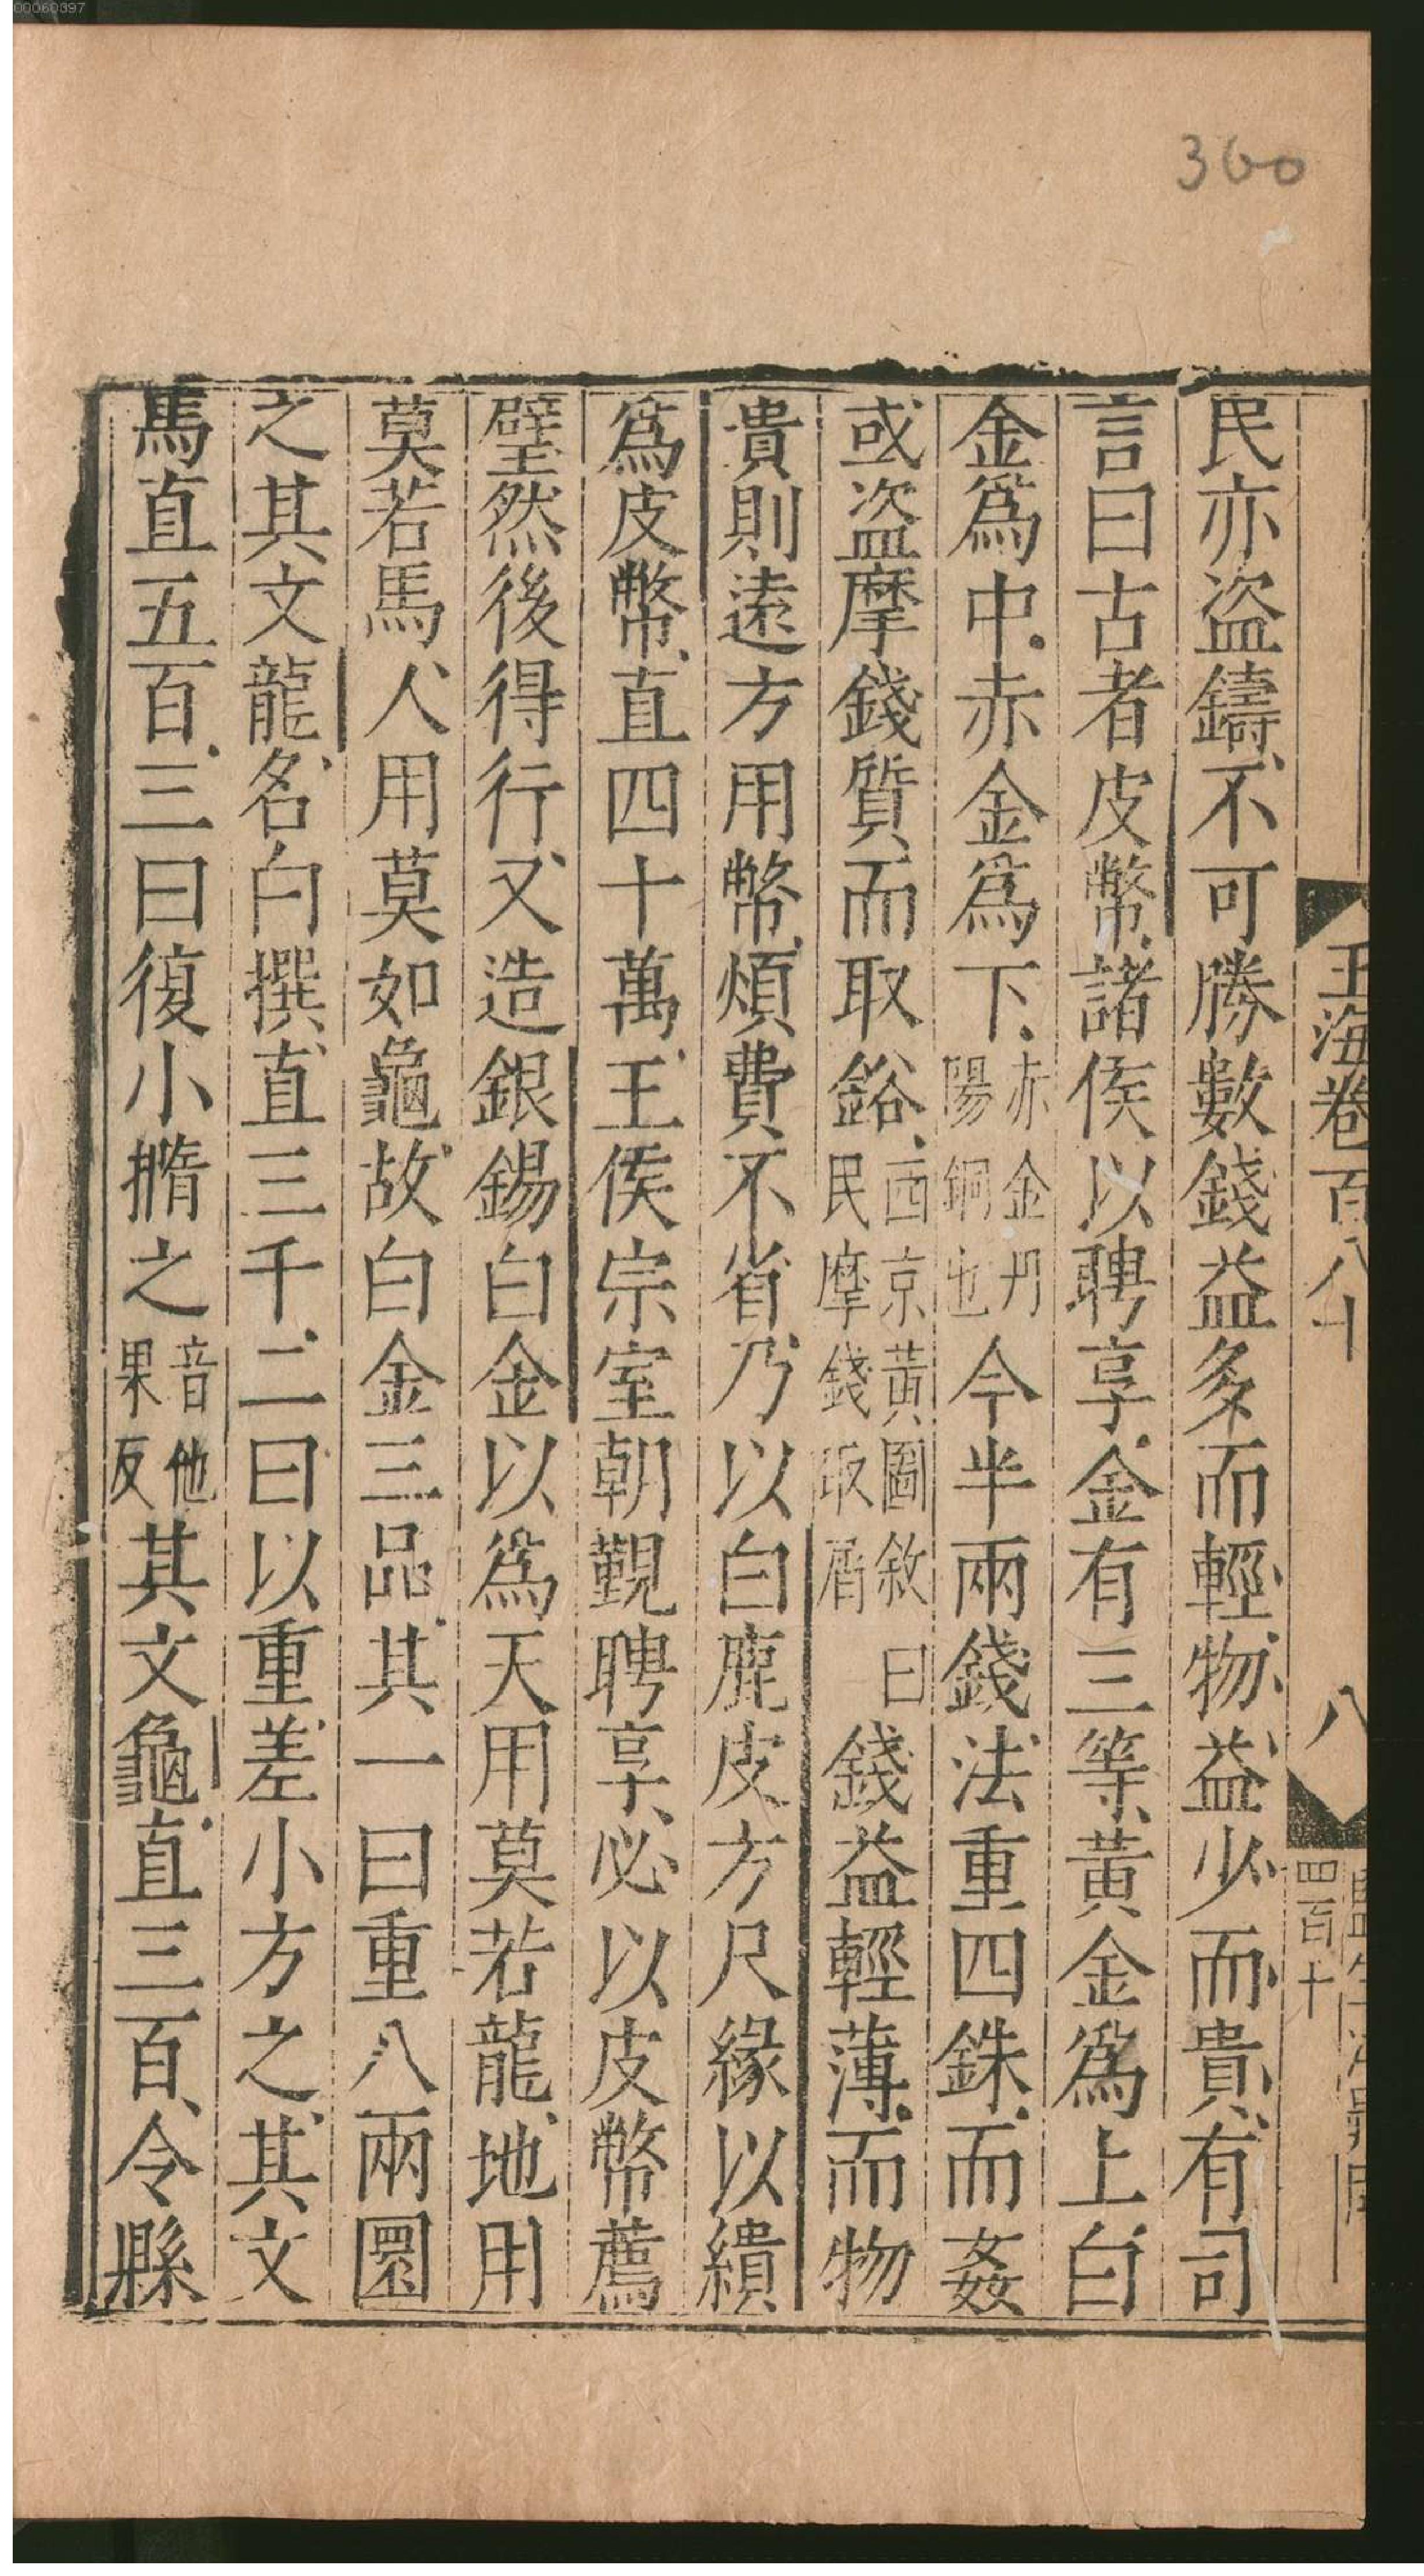 00060397
360
玉海卷百八十
八
四百十
民亦盗鑄不可勝數錢益多而輕物益少而貴有司
言曰古者皮幣諸侯以聘享金有三等黃金爲上白
金爲中赤金爲下赤金丹陽銅也今半兩錢法重四銖而姦
或盗摩錢質而取鋊西京黃圖敘曰民摩錢取屑錢益輕薄而物
貴則遠方用幣煩費不省乃以白鹿皮方尺緣以繢
爲皮幣直四十萬王侯宗室朝覲聘享必以皮幣薦
璧然後得行又造銀錫白金以爲天用莫若龍地用
莫若馬人用莫如龜故白金三品其一曰重八兩圜
之其文龍名白撰直三千二曰以重差小方之其文
馬直五百三曰復小撱之音他果反其文龜直三百令縣